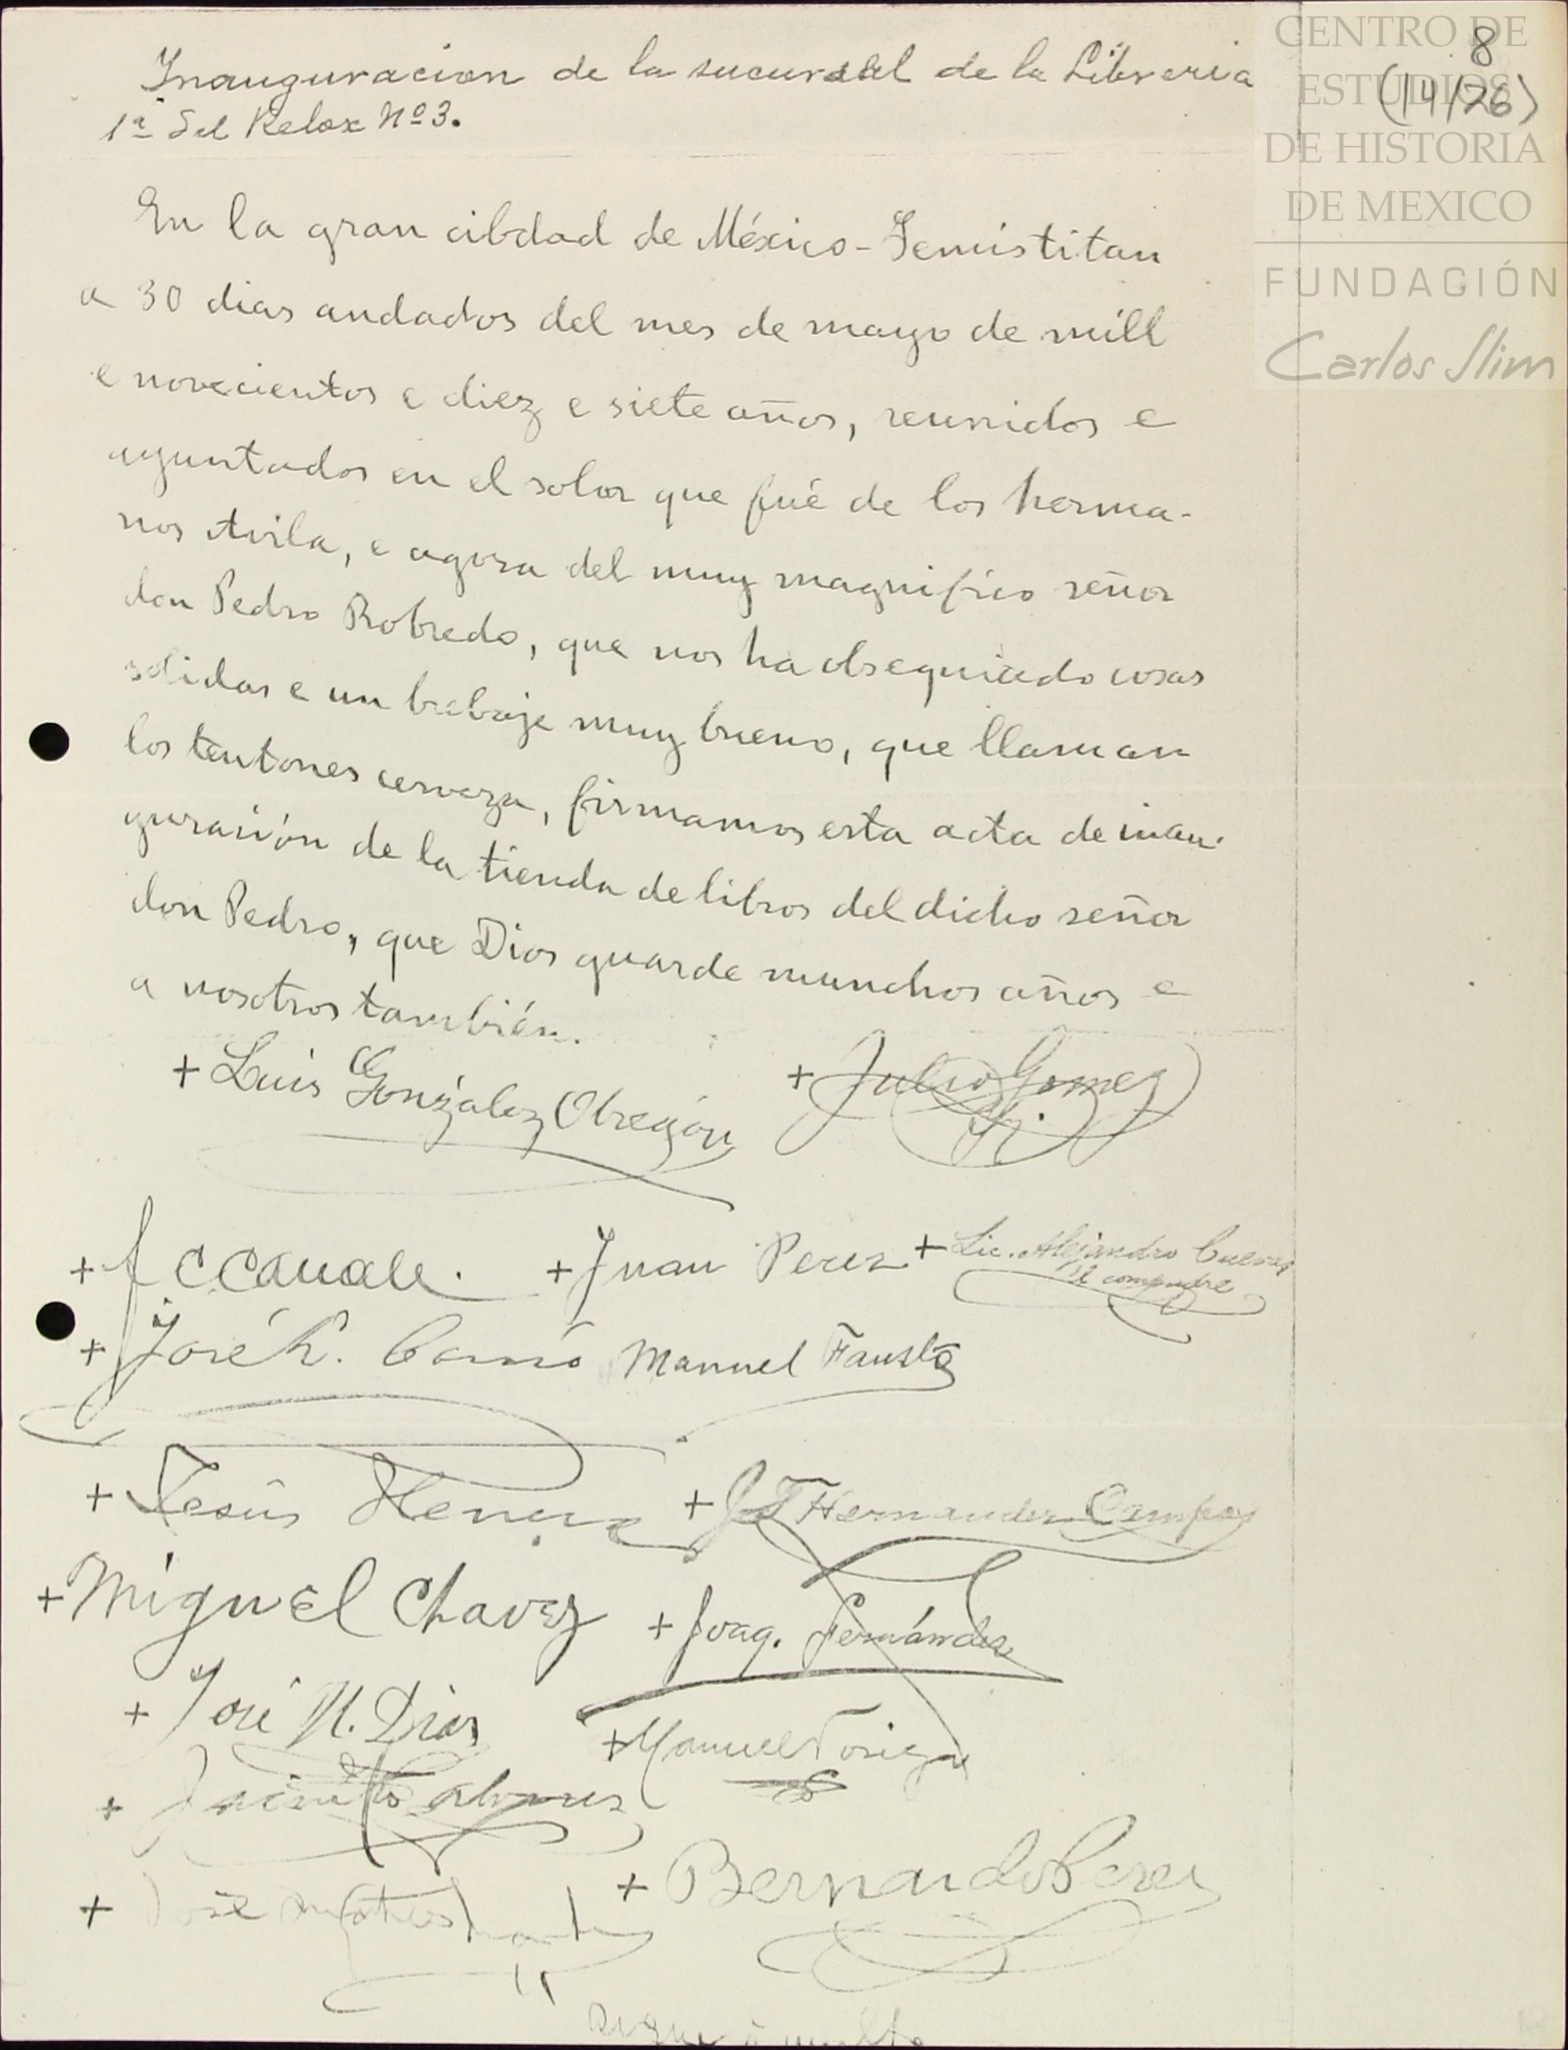 Inauguracion de la sucursal de la Libreria
1ª del Relox Nº 3.
8
(14/26)
CENTRO DE
ESTUDIOS
DE HISTORIA
DE MEXICO
FUNDACIÓN
Carlos Slim
En la gran cibdad de México-Temistitan
a 30 dias andados del mes de mayo de mill
e novecientos e diez e siete años, reunidos e
ayuntados en el solar que fué de los herma-
nos Avila, e agora del muy magnifico señor
don Pedro Robredo, que nos ha obsequiado cosas
solidas e un brebaje muy bueno, que llaman
los teutones cerveza, firmamos esta acta de inau-
guración de la tienda de libros del dicho señor
don Pedro, que Dios guarde munchos años e
a nosotros también.
+ Luis González Obregón + Julio Gomez
+ Juan Perez + Lic. Alejandro Cuevas
El compadre
+ José Manuel Fausto
+ Jesús + Hernandez Campos
+ Miguel Chavez + Joaq. Fernández
+ José N. Dias
+ Manuel
+ Jacinto
+ José + Bernardo Perez
sigue a vuelta